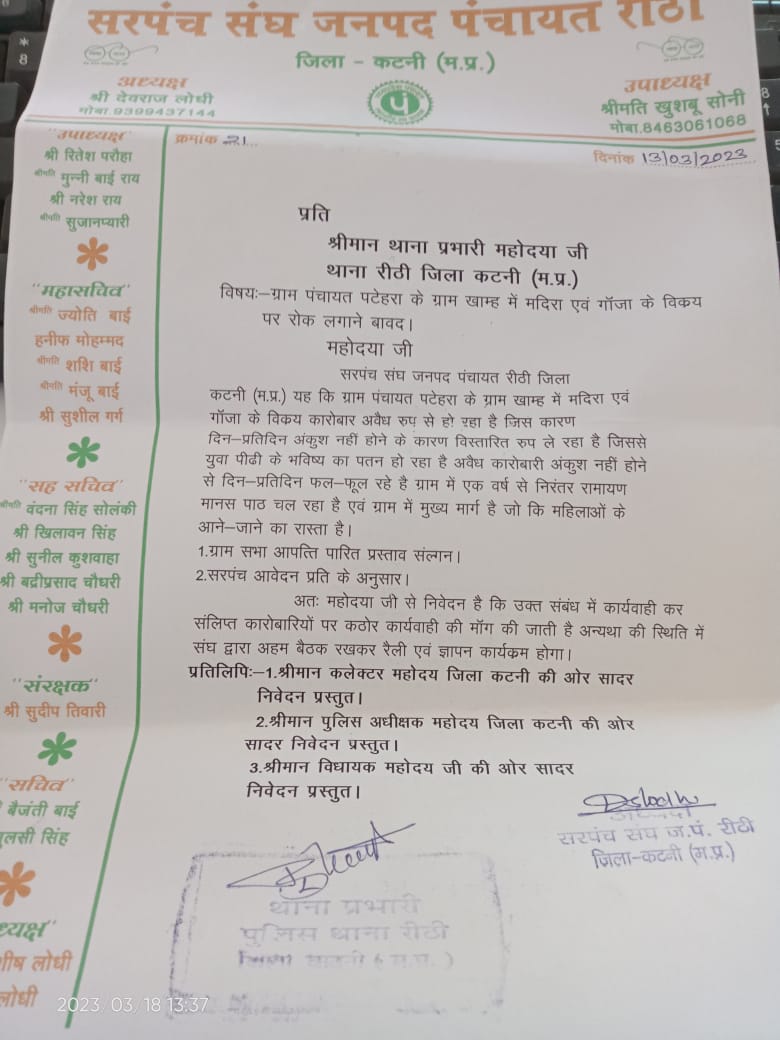 सरपंच संघ जनपद पंचायत रीठी
जिला - कटनी (म.प्र.)
अध्यक्ष
श्री देवराज लोधी
मोबा.9399437144
उपाध्यक्ष
श्रीमति खुशबू सोनी
मोबा.8463061068
क्रमांक 21
दिनांक 13/03/2023
"उपाध्यक्ष"
श्री रितेश परौहा
श्रीमति मुन्नी बाई राय
श्री नरेश राय
श्रीमति सुजानप्यारी
"महासचिव"
श्रीमति ज्योति बाई
हनीफ मोहम्मद
श्रीमति शशि बाई
श्रीमति मंजू बाई
श्री सुशील गर्ग
"सह सचिव"
श्रीमति वंदना सिंह सोलंकी
श्री खिलावन सिंह
श्री सुनील कुशवाहा
श्री बद्रीप्रसाद चौधरी
श्री मनोज चौधरी
"संरक्षक"
श्री सुदीप तिवारी
"सचिव"
बैजंती बाई
लसी सिंह
ध्यक्ष"
शीष लोधी
लोधी
प्रति
श्रीमान थाना प्रभारी महोदया जी
थाना रीठी जिला कटनी (म.प्र.)
विषयः–ग्राम पंचायत पटेहरा के ग्राम खाम्ह में मदिरा एवं गॉजा के विकय
पर रोक लगाने बावद।
महोदया जी
सरपंच संघ जनपद पंचायत रीठी जिला
कटनी (म.प्र.) यह कि ग्राम पंचायत पटेहरा के ग्राम खाम्ह में मदिरा एवं
गॉजा के विकय कारोबार अवैध रुप से हो रहा है जिस कारण
दिन–प्रतिदिन अंकुश नहीं होने के कारण विस्तारित रुप ले रहा है जिससे
युवा पीढी के भविष्य का पतन हो रहा है अवैध कारोबारी अंकुश नहीं होने
से दिन–प्रतिदिन फल–फूल रहे है ग्राम में एक वर्ष से निरंतर रामायण
मानस पाठ चल रहा है एवं ग्राम में मुख्य मार्ग है जो कि महिलाओं के
आने–जाने का रास्ता है।
1.ग्राम सभा आपत्ति पारित प्रस्ताव संल्गन।
2.सरपंच आवेदन प्रति के अनुसार।
अतः महोदया जी से निवेदन है कि उक्त संबंध में कार्यवाही कर
संलिप्त कारोबारियों पर कठोर कार्यवाही की मॉग की जाती है अन्यथा की स्थिति में
संघ द्वारा अहम बैठक रखकर रैली एवं ज्ञापन कार्यकम होगा।
प्रतिलिपिः–1.श्रीमान कलेक्टर महोदय जिला कटनी की ओर सादर
निवेदन प्रस्तुत।
2.श्रीमान पुलिस अधीक्षक महोदय जिला कटनी की ओर
सादर निवेदन प्रस्तुत।
3.श्रीमान विधायक महोदय जी की ओर सादर
निवेदन प्रस्तुत।
अध्यक्ष
सरपंच संघ ज.पं. रीठी
जिला-कटनी (म.प्र.)
थाना प्रभारी
पुलिस थाना रीठी
जिला कटनी (म.प्र.)
2023/03/18 13:37